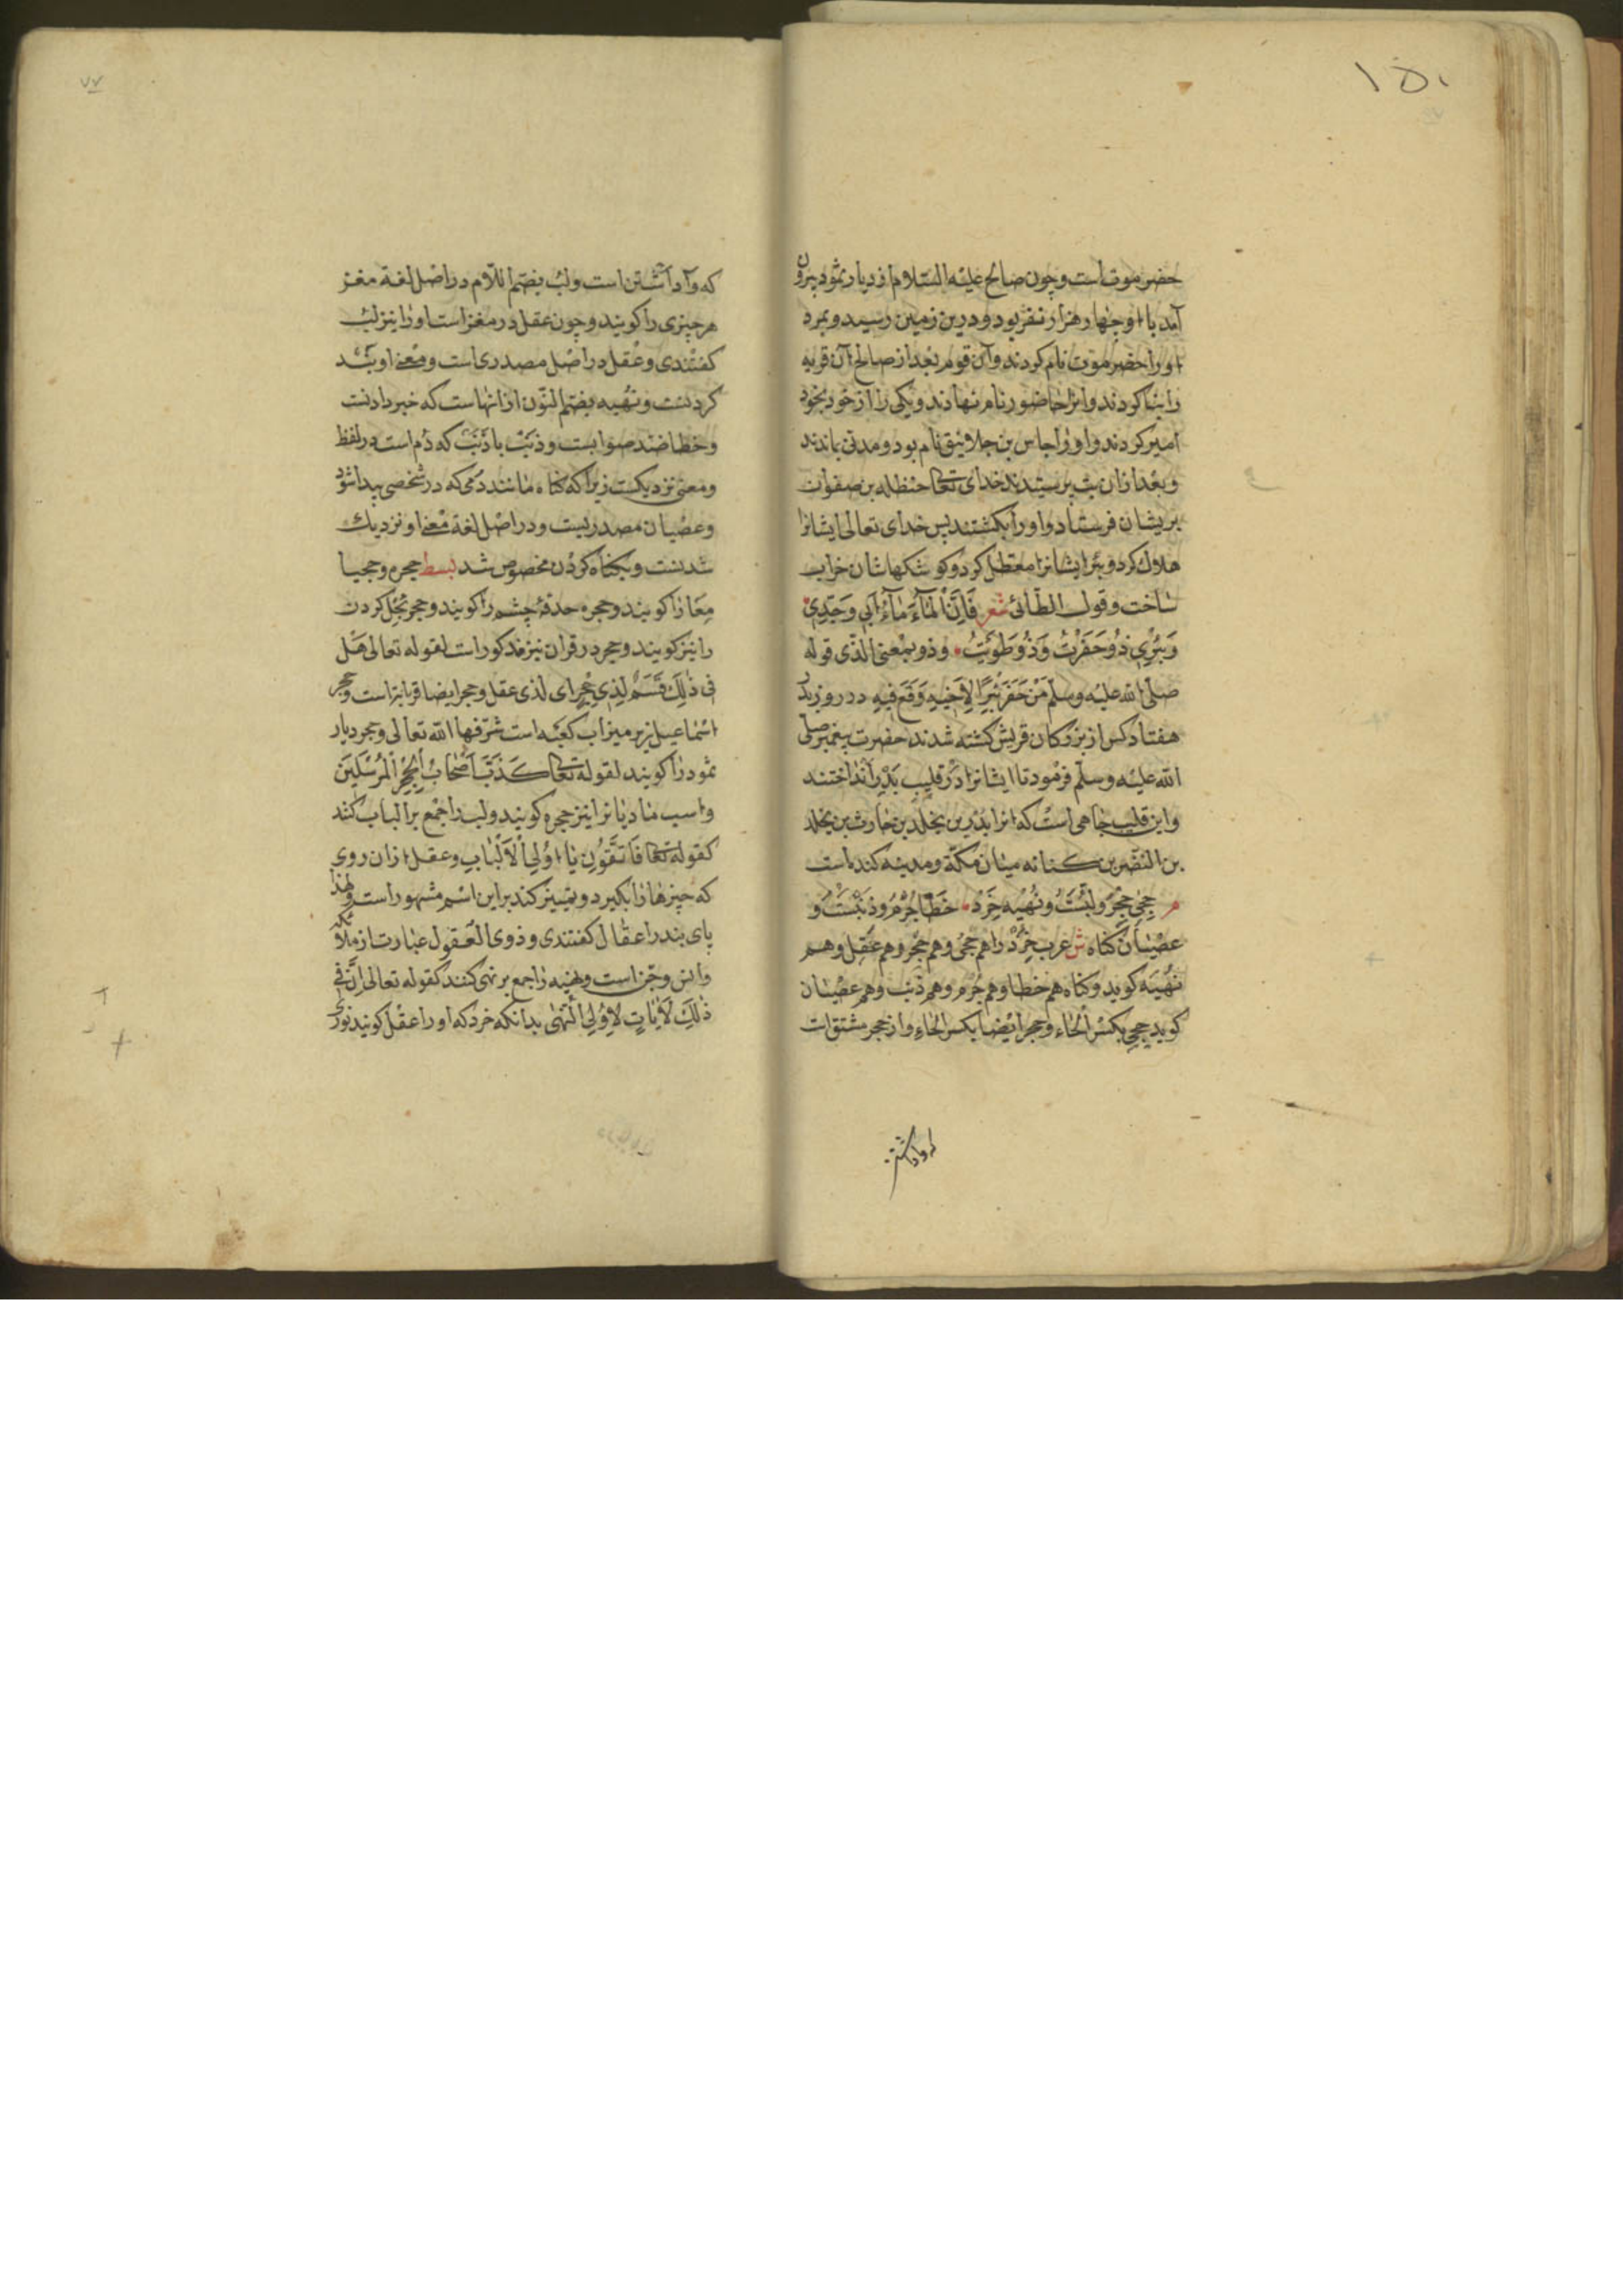 ۱۵۰
حضرموت است و چون صالح علیه السّلام از دیار ثمود بیرون
آمد با او چهار هزار نفر بود و درین زمین رسید و بمرد
او را حضرموت نام کردند و آن قوم بعد از صالح آن قریه
را بنا کردند و انرا حاضور نام نهادند و یکی را از خود بخود
امیر کردند و او را جاس بن جلا نام بود و مدتی بماندند
و بعد ازان بت پرستیدند خدای تعالی حنظله بن صفوان
بریشان فرستاد و او را بکشتند پس خدای تعالی ایشانرا
هلاک کرد و بئر ایشانرا معطل کرد و کوشکهاشان خراب
ساخت و قول الطّائی شعر فَاِنَّ الْمَآءَ مَآءُ اَبِی وَ جَدِّی
وَ بِئْرِی ذُو حَفَرْتُ وَ ذُو طَوَیْتُ و ذو بمعنی الّذی قوله
صلّی الله علیه وسلّم مَنْ حَفَرَ بِئْرًا لِاَخِیهِ وَقَعَ فِیهِ در روز بدر
هفتاد کس از بزرکان قریش کشته شدند حضرت پیغمبر صلی
الله علیه وسلّم فرمود تا ایشانرا در قلیب بدر انداختند
و این قلیب چاهی است که انرا بدر بن یخلد بن حارث بن یخلد
بن النضر بن کنانه میان مکّه و مدینه کنده است
م حِجی حِجْر و لُبّست و نُهیَه خِرَد خَطا جُرْم و ذَنْبست و
عصْیان کناه ش عرب خِرَد را هم حجی و هم حِجْر و هم عَقل و هم
نُهْیَه کوید و کناه هم خطا و هم جُرْم و هم ذَنْب و هم عصْیان
کوید حجی بکسر الحاء و حجر ایضا بکسر الحاء و از حجر مشتق ات
که واداشتن
۷۷
که واداشتن است و لب بضم اللّام در اصل لغة مغز
هر چیزی را کویند و چون عقل در مغز است او را نیز لب
کفتندی و عقل در اصل مصدری است و معنی او بند
کردنست و نهیه بضم النّون از انهاست که خبر دادنست
و خطا ضد صوابست و ذَنْب با ذَنَب که دُم است در لفظ
و معنی نزدیکست زیرا که کناه مانند دمی که در شخصی پیدا شود
و عصیان مصدریست و در اصل لغة معنی او نزدیک
شدنست و بکناه کردن مخصوص شد بسط حجره و حجیا
را کویند و حجره حدقۀ چشم را کویند و حجر بخل کردن
را نیز کویند و حجر در قران نیز مذکور است لقوله تعالی هَلْ
فِی ذٰلِکَ قَسَمٌ لِذِی حِجْرٍ ای لذی عقل و حجر ایضا قرابتست و حجر
اسماعیل زیر میزاب کعبه است شرّفها الله تعالی و حجر دیار
ثمود را کویند لقوله تعالی کَذَّبَ اَصْحَابُ الْحِجْرِ الْمُرْسَلِینَ
و اسب مادیانرا نیز حجره کویند و لب را جمع بر الباب کنند
کقوله تعالی فَاتَّقُونِ یَا اُولِی الْاَلْبَابِ و عقل ازان روی
که چیزها را بکیرد و تمییز کند براین اسم مشهور است و لهذا
پای بند را عقال کفتندی و ذوی العقول عبارت از ملائکه
و انس و جن است و نهیه را جمع بر نهی کنند کقوله تعالی اِنَّ فِی
ذٰلِکَ لَاٰیَاتٍ لِاُولِی النُّهٰی بدانکه خرد که او را عقل کویند نوری